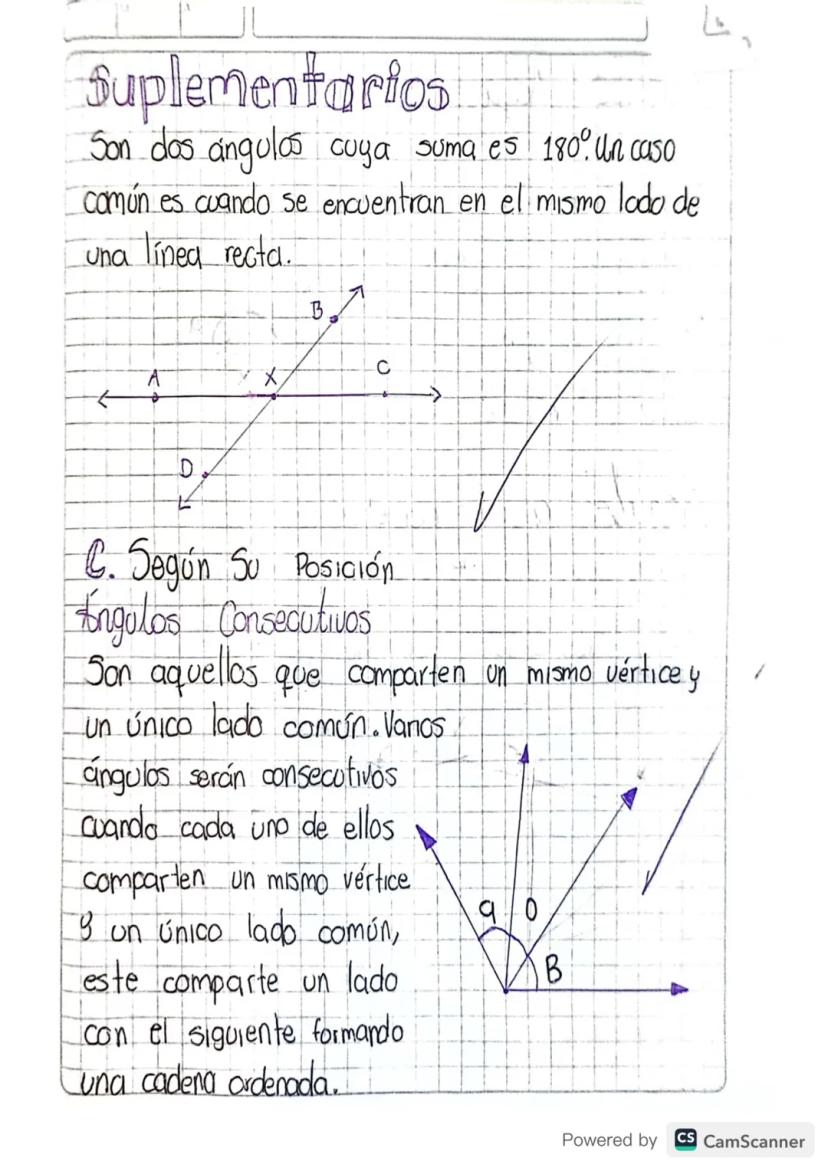 Suplementarios
Son dos ángulos cuya suma es 180°. Un caso
común es cuando se encuentran en el mismo lado de
una línea recta.
B
A X C
D
C. Según Su Posición
Ángulos Consecutivos
Son aquellos que comparten un mismo vértice y
un único lado común. Varios
ángulos serán consecutivos
cuando cada uno de ellos
comparten un mismo vértice
y un único lado común,
este comparte un lado
con el siguiente formando
una cadena ordenada.
a O
B
Powered by CS CamScanner